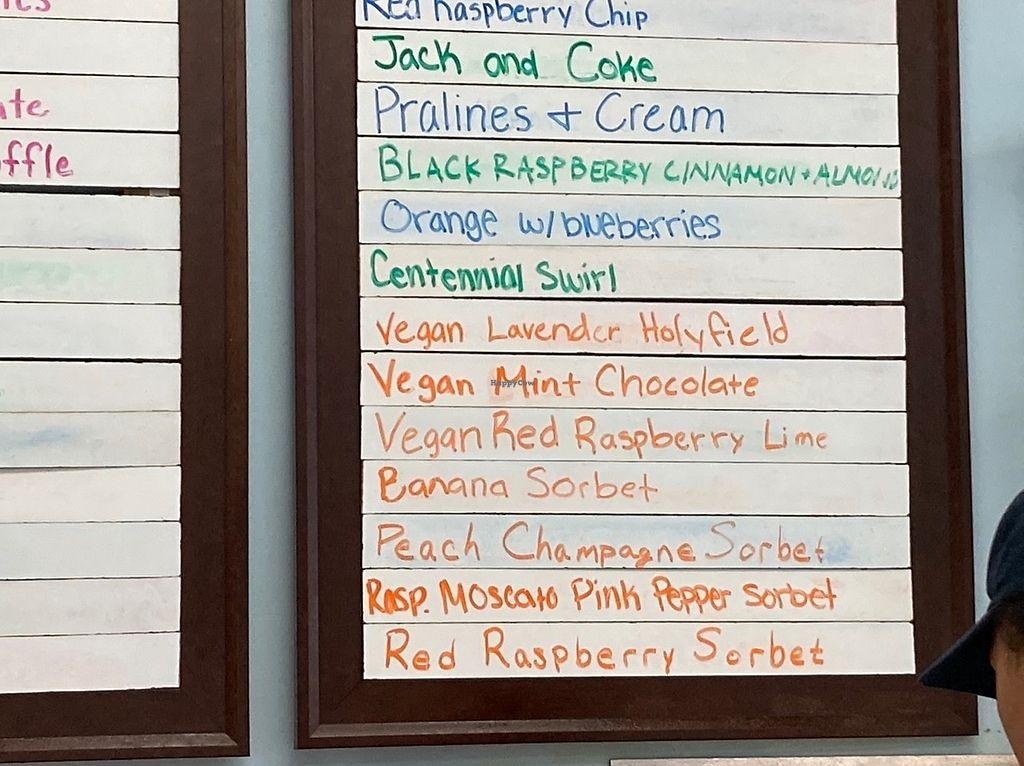 ate
ffle
Red Raspberry Chip
Jack and Coke
Pralines + Cream
BLACK RASPBERRY CINNAMON + ALMONDS
Orange w/blueberries
Centennial Swirl
Vegan Lavender Holyfield
Vegan Mint Chocolate
HappyCow
Vegan Red Raspberry Lime
Banana Sorbet
Peach Champagne Sorbet
Rasp. Moscato Pink Pepper Sorbet
Red Raspberry Sorbet